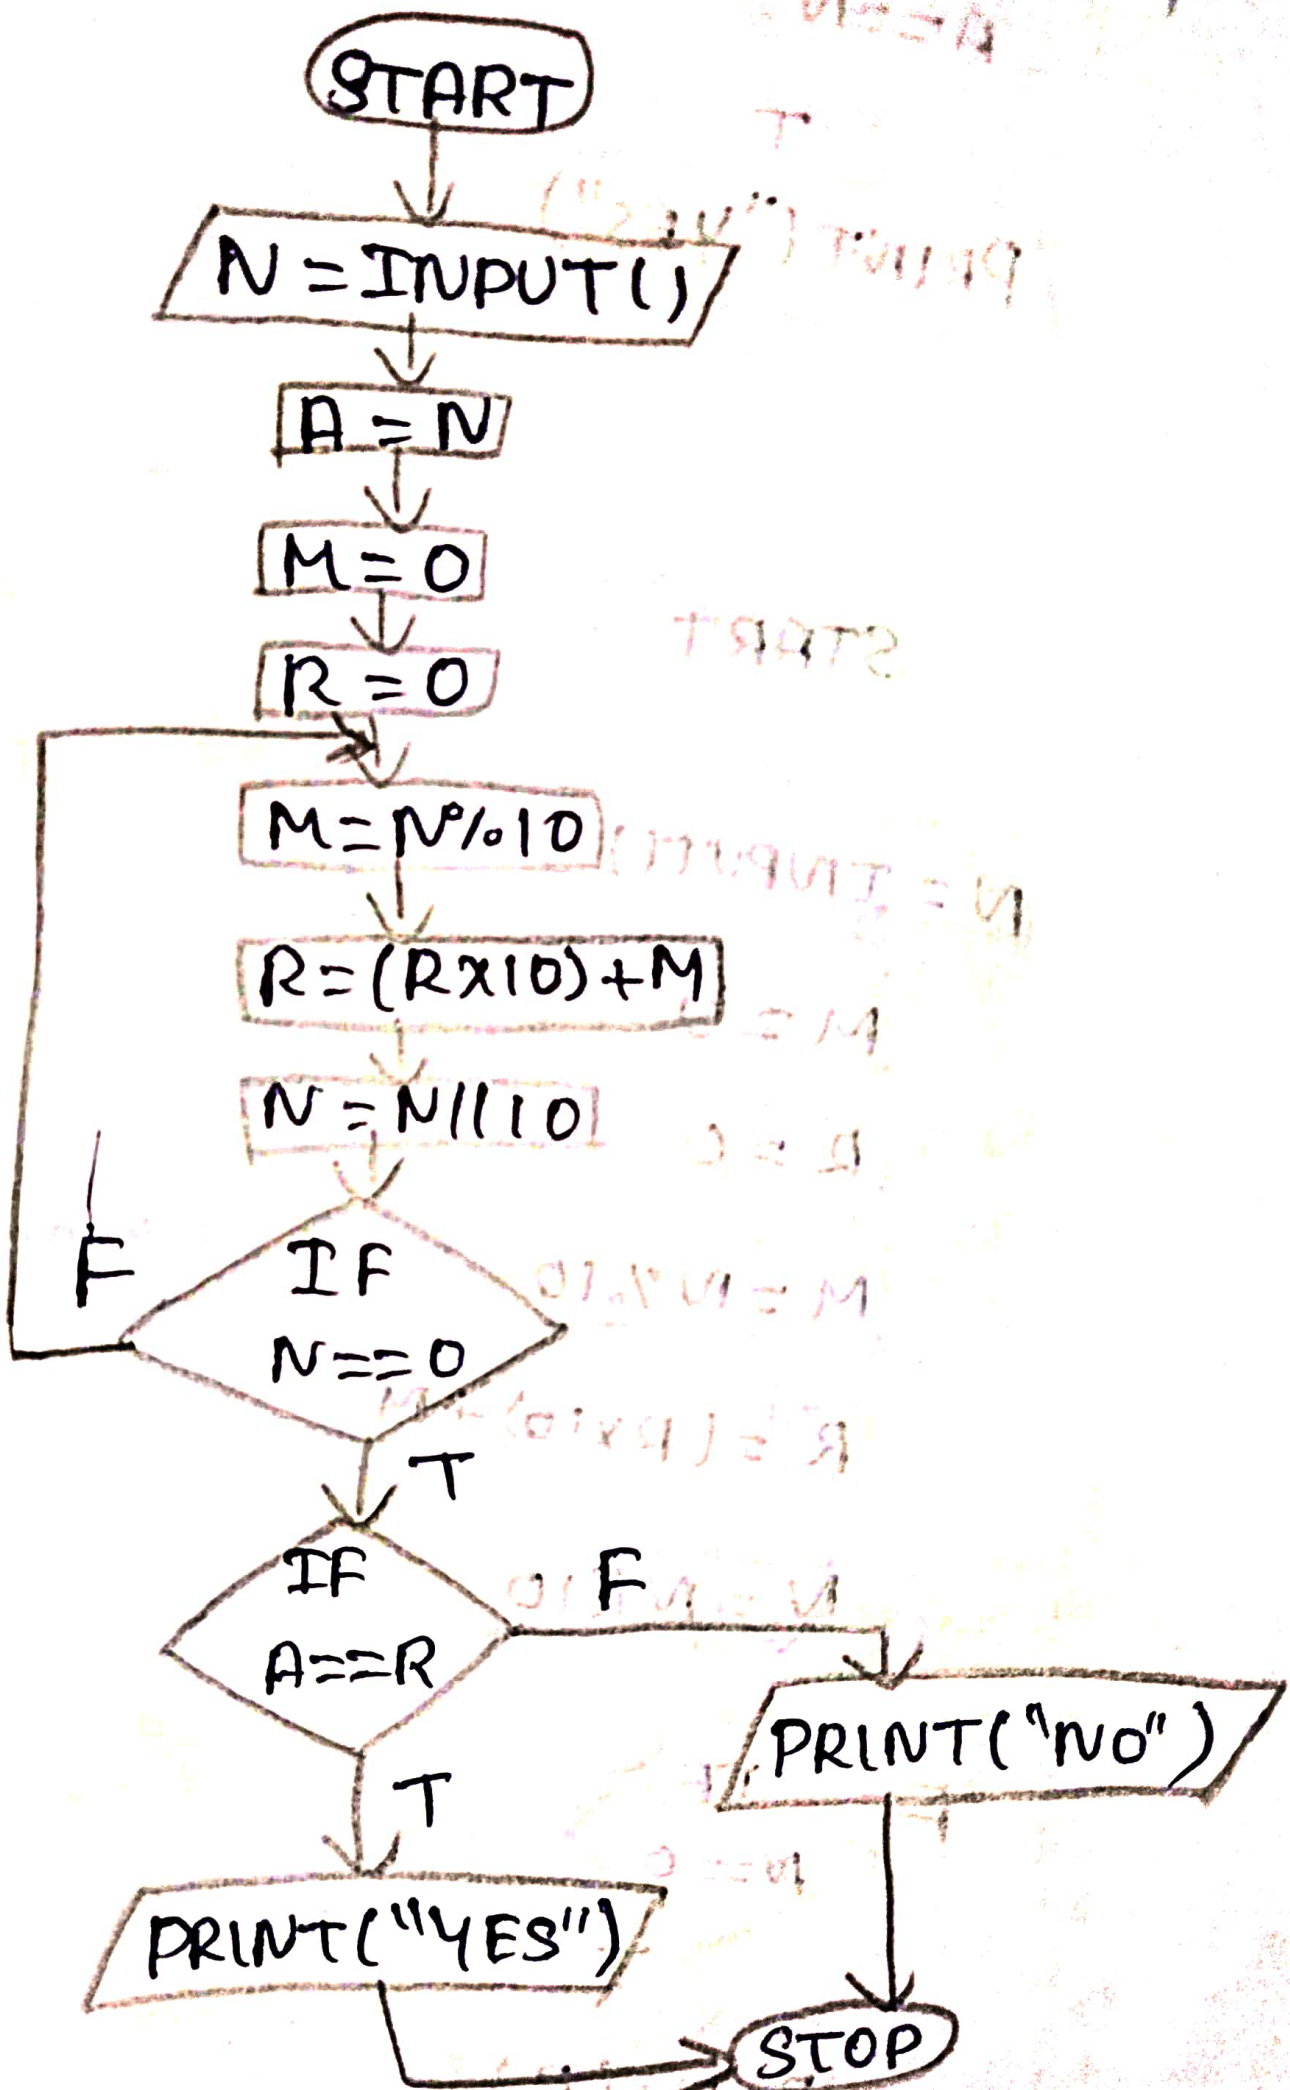 START
N=INPUT()
A=N
M=0
R=0
M=N%10
R=(RX10)+M
N=N//10
F
IF
N==0
T
IF
A==R
F
PRINT("NO")
T
PRINT("YES")
STOP